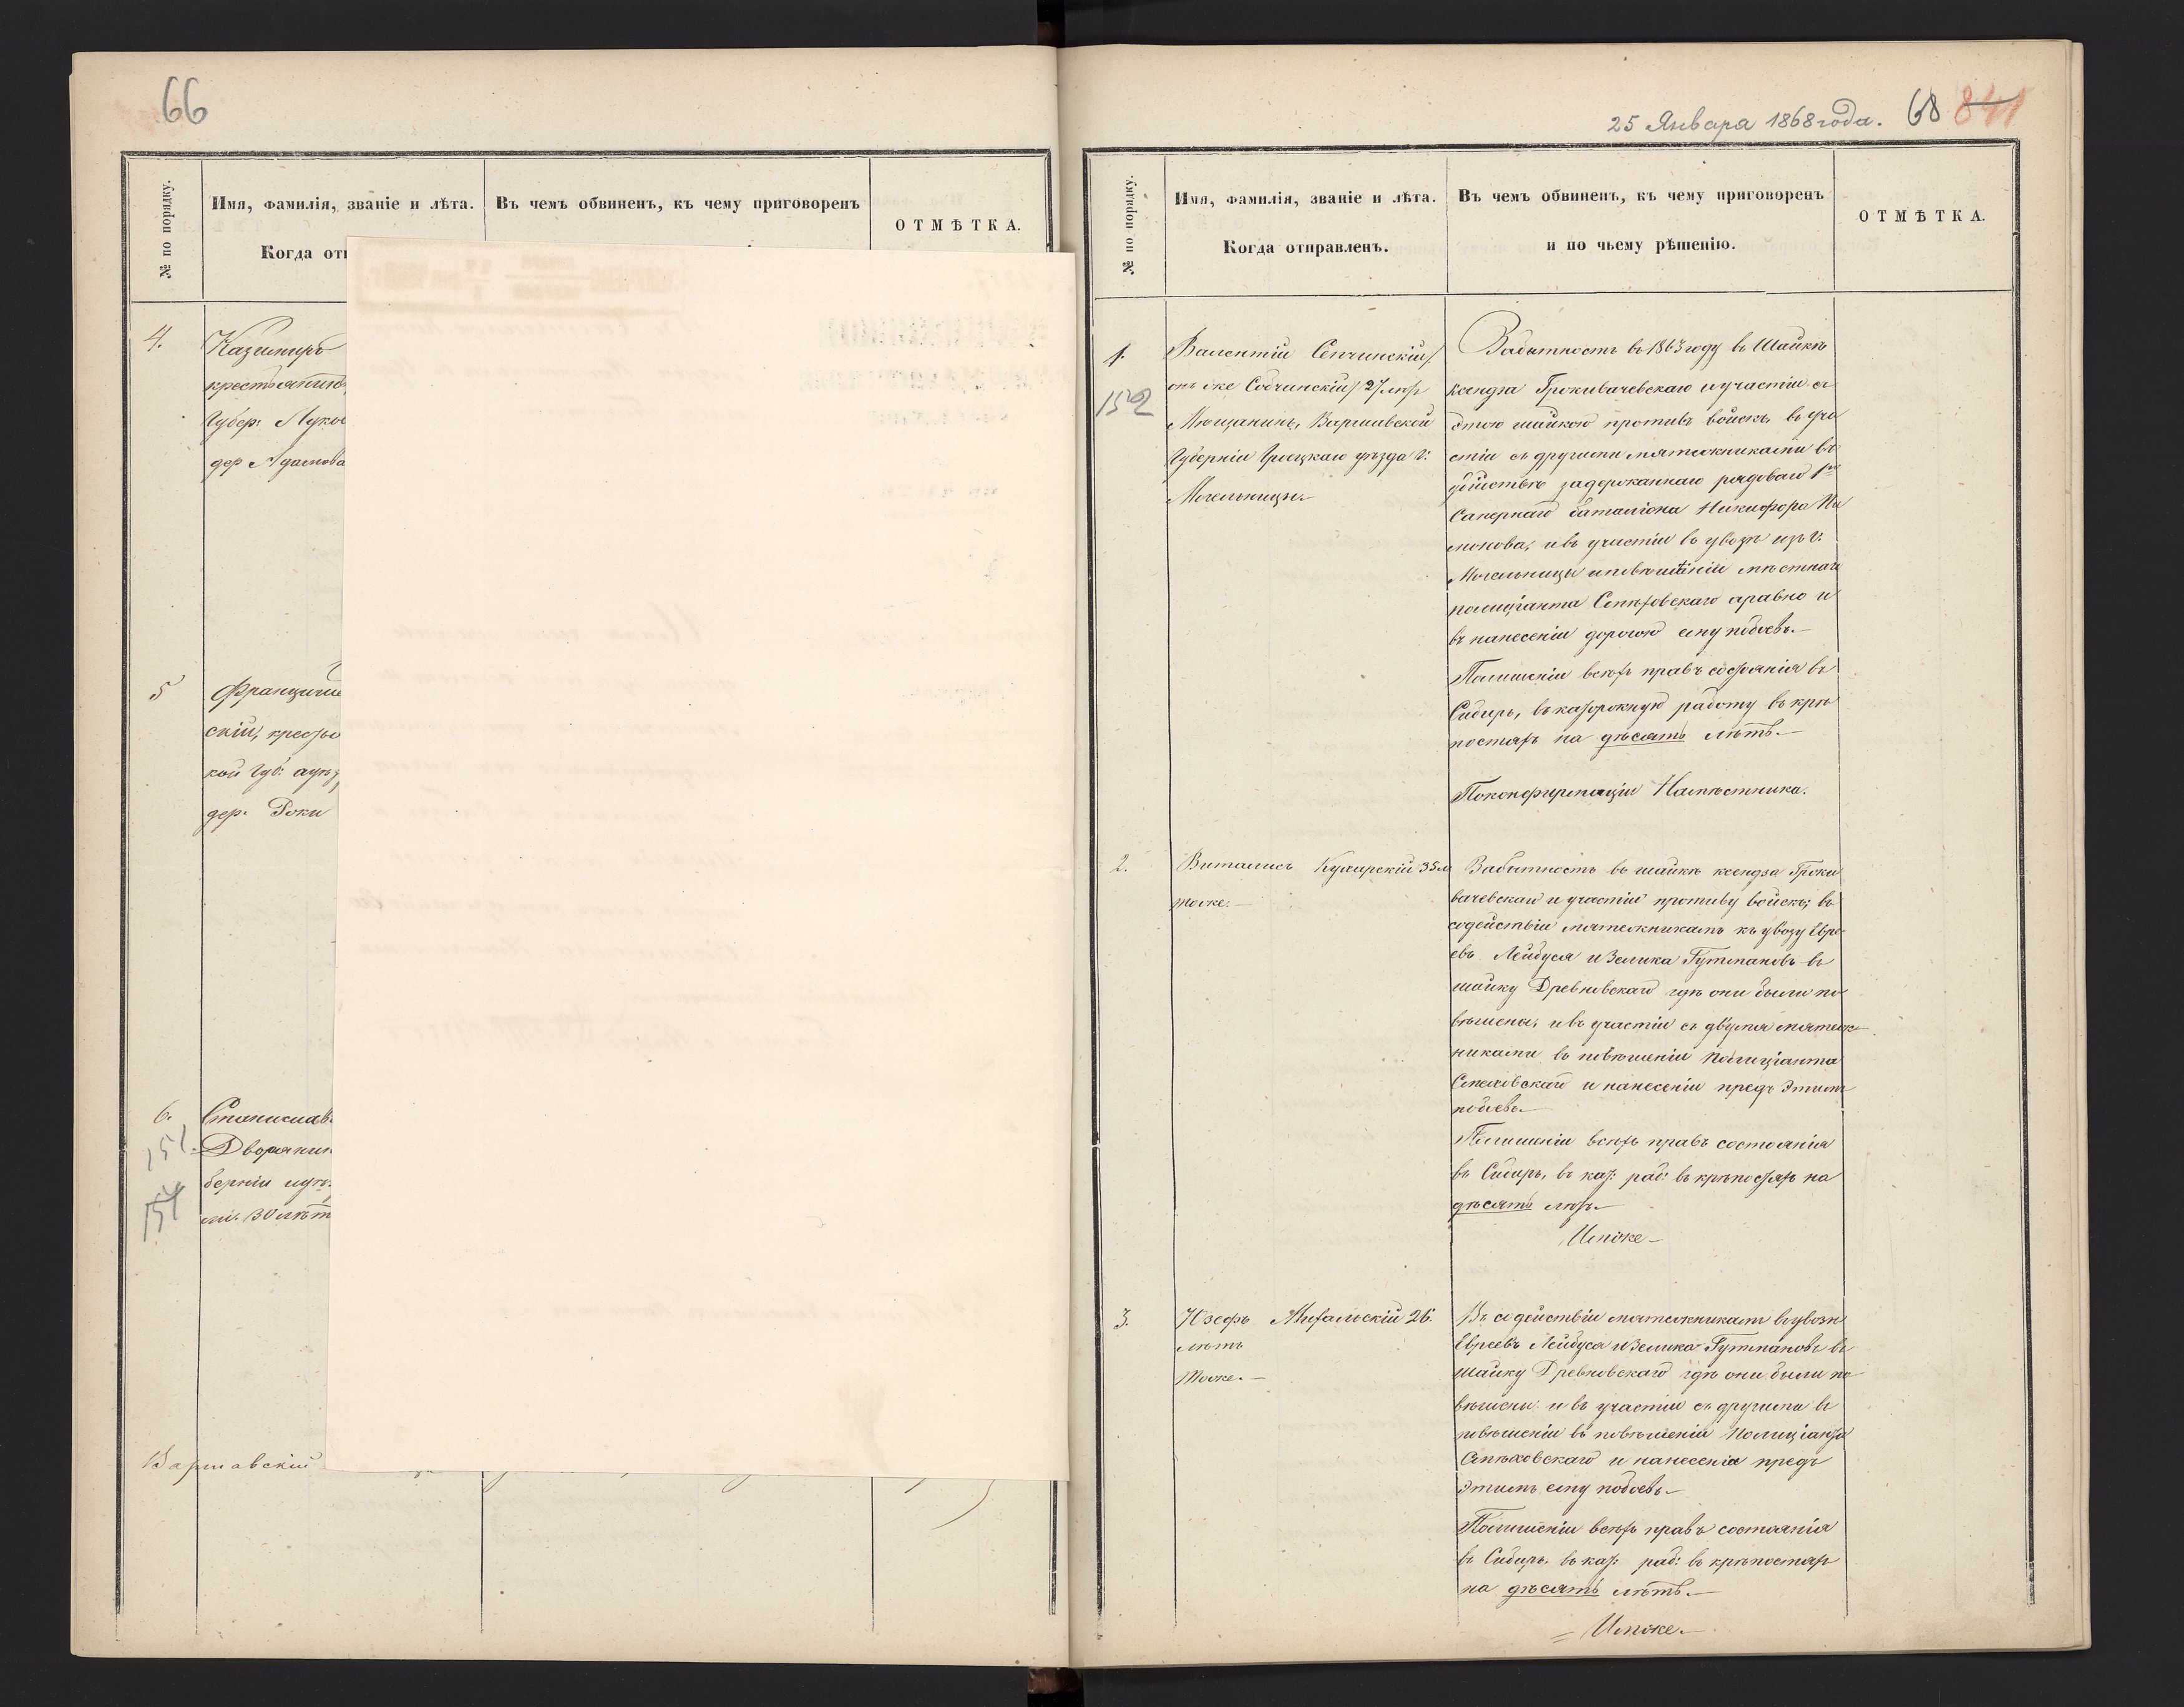 66
№ по порядку.
Имя, фамилія, званіе и лѣта.
Когда отп
Въ чемъ обвиненъ, къ чему приговоренъ
ОТМѢТКА.
4.
Казимиръ
крестьянинъ
Губер. Луко
дер Адамова
5
Франциш
скій, кресть
кой Губ: а уѣз
дер. Роки
6.
151
151
Станиславъ
Дворянин
берніи и уѣз
30 лѣт
Варшавскій
25 Января 1868 года.
68 841
№ по порядку.
Имя, фамилія, званіе и лѣта.
Когда отправленъ.
Въ чемъ обвиненъ, къ чему приговоренъ
и по чьему рѣшенію.
ОТМѢТКА.
1.
152
Валентій Сепчинскій /
онъ же Собчинскій / 27 лѣт
Мѣщанинъ, Варшавской
Губерніи Гроецкаго уѣзда г.
Могельницы.
За бытность въ 1863 году въ Шайкѣ
ксендза Грокивачевскаго и участіи съ
этою шайкою противъ войскъ, въ уча
стіи съ другими мятежниками въ
убійствѣ задержаннаго рядоваго 1го
Сапернаго баталіона Никифора Пи
монова, и въ участіи въ увозѣ изъ г.
Могельницы и повѣшеніи мѣстнаго
полиціанта Стѣховскаго а равно и
въ нанесеніи дорогою ему побоевъ.—
По лишеніи всѣхъ правъ состоянія въ
Сибирь, въ каторжную работу въ крѣ
постяхъ на дѣсять лѣтъ.—
По конфирмаціи Намѣстника.
2.
Виталисъ Кухарскій 35 л
тоже.—
За бытность въ шайкѣ ксендза Гроки
вачевскаго и участіи противу войскъ; въ
содействіи мятежникамъ къ увозу Евре
евъ Лейбуся и Зелика Гутмановъ въ
шайку Древновскаго гдѣ они были по
вѣшены, и въ участіи съ двумя мятеж
никами въ повѣшеніи Полиціанта
Стеховскаго и нанесеніи предъ этимъ
побоевъ—
По лишеніи всѣхъ правъ состоянія
въ Сибирь, въ кат: раб: въ крѣпостяхъ на
дѣсять лѣтъ.—
Имъже—
3.
Юзефъ Михальскій 26.
лѣтъ
Тоже.—
Въ содѣйствіи мятежникамъ въ увозѣ
Евреевъ Лейбуся и Зелика Гутмановъ въ
шайку Древновскаго гдѣ они были по
вѣшены и въ участіи съ другими въ
повѣшеніи въ повѣшеніи Полиціанта
Стѣховскаго и нанесенія предъ
этимъ ему побоевъ.—
По лишеніи всѣхъ правъ состоянія
въ Сибирь. въ кат: раб: въ крѣпостяхъ
на дѣсять лѣтъ.—
Имъже.—